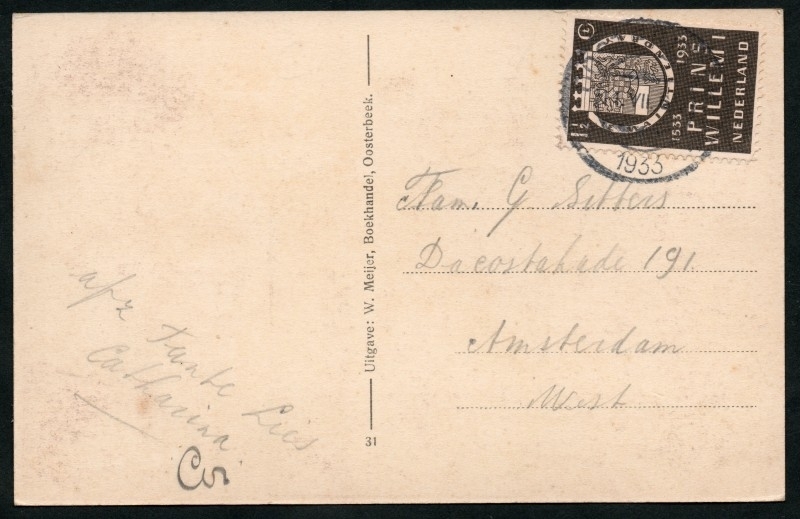 afz Tante Lies
Catharina
Cor
Uitgave: W. Meijer, Boekhandel, Oosterbeek.
31
1½ ct
1533 1933
PRINS
WILLEM I
NEDERLAND
1933
Fam. G. Sitters
Dacostakade 191.
Amsterdam
West